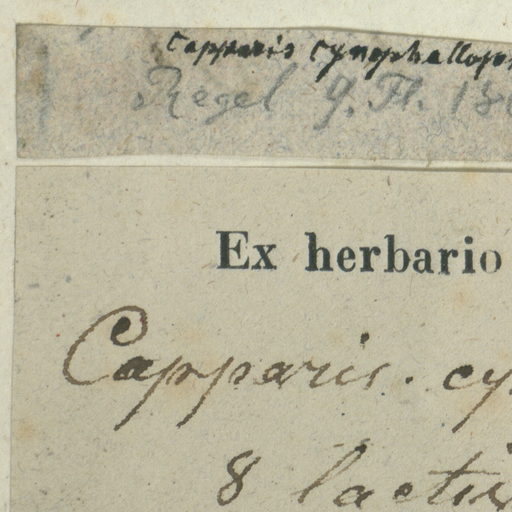 Capparis cynophallop
Regel G. Fl. 18
Ex herbario
Capparis. cy
8 lacti